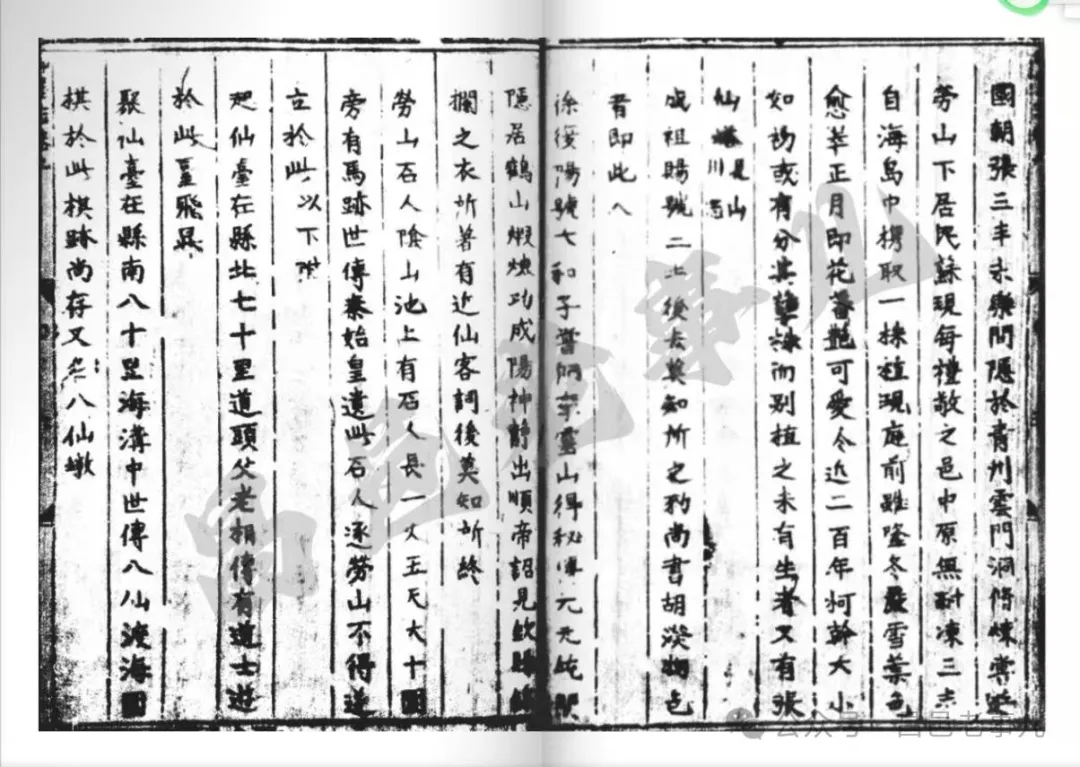 國朝張三丰永樂間隱於青州雲門洞修煉嘗遊
勞山下居民蘇現每禮敬之邑中原無耐凍三丰
自海島中携取一株植現庭前雖隆冬嚴雪葉色
愈萃正月即花蕃艷可愛今近二百年柯幹大小
如初或有分其孽株而別植之未有生者又有張
仙塔是山
川志
成祖賜號二土後去莫知所之豹尚書胡濙物色
者即此人
徐復陽號七和子嘗師宗靈山得秘傳元元純關
隱居鶴山煅煉功成陽神靜出順帝詔見欽賜錦
襴之衣所著有近仙客詞後莫知所終
勞山石人陰山池上有石人長一丈五尺大十圍
旁有馬跡世傳秦始皇遺此石人逐勞山不得遂
立於此以下附
望仙臺在縣北七十里道頭父老相傳有道士遊
於此臺飛昇
聚仙臺在縣南八十里海溝中世傳八仙渡海
棋於此棋跡尚存又名八仙墩
昌邑老事儿
公众号 昌邑老事儿